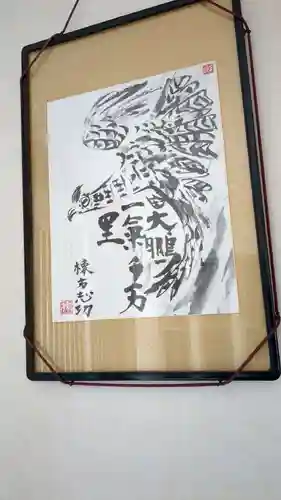 大鵬
一氣千万
里
棟方志功